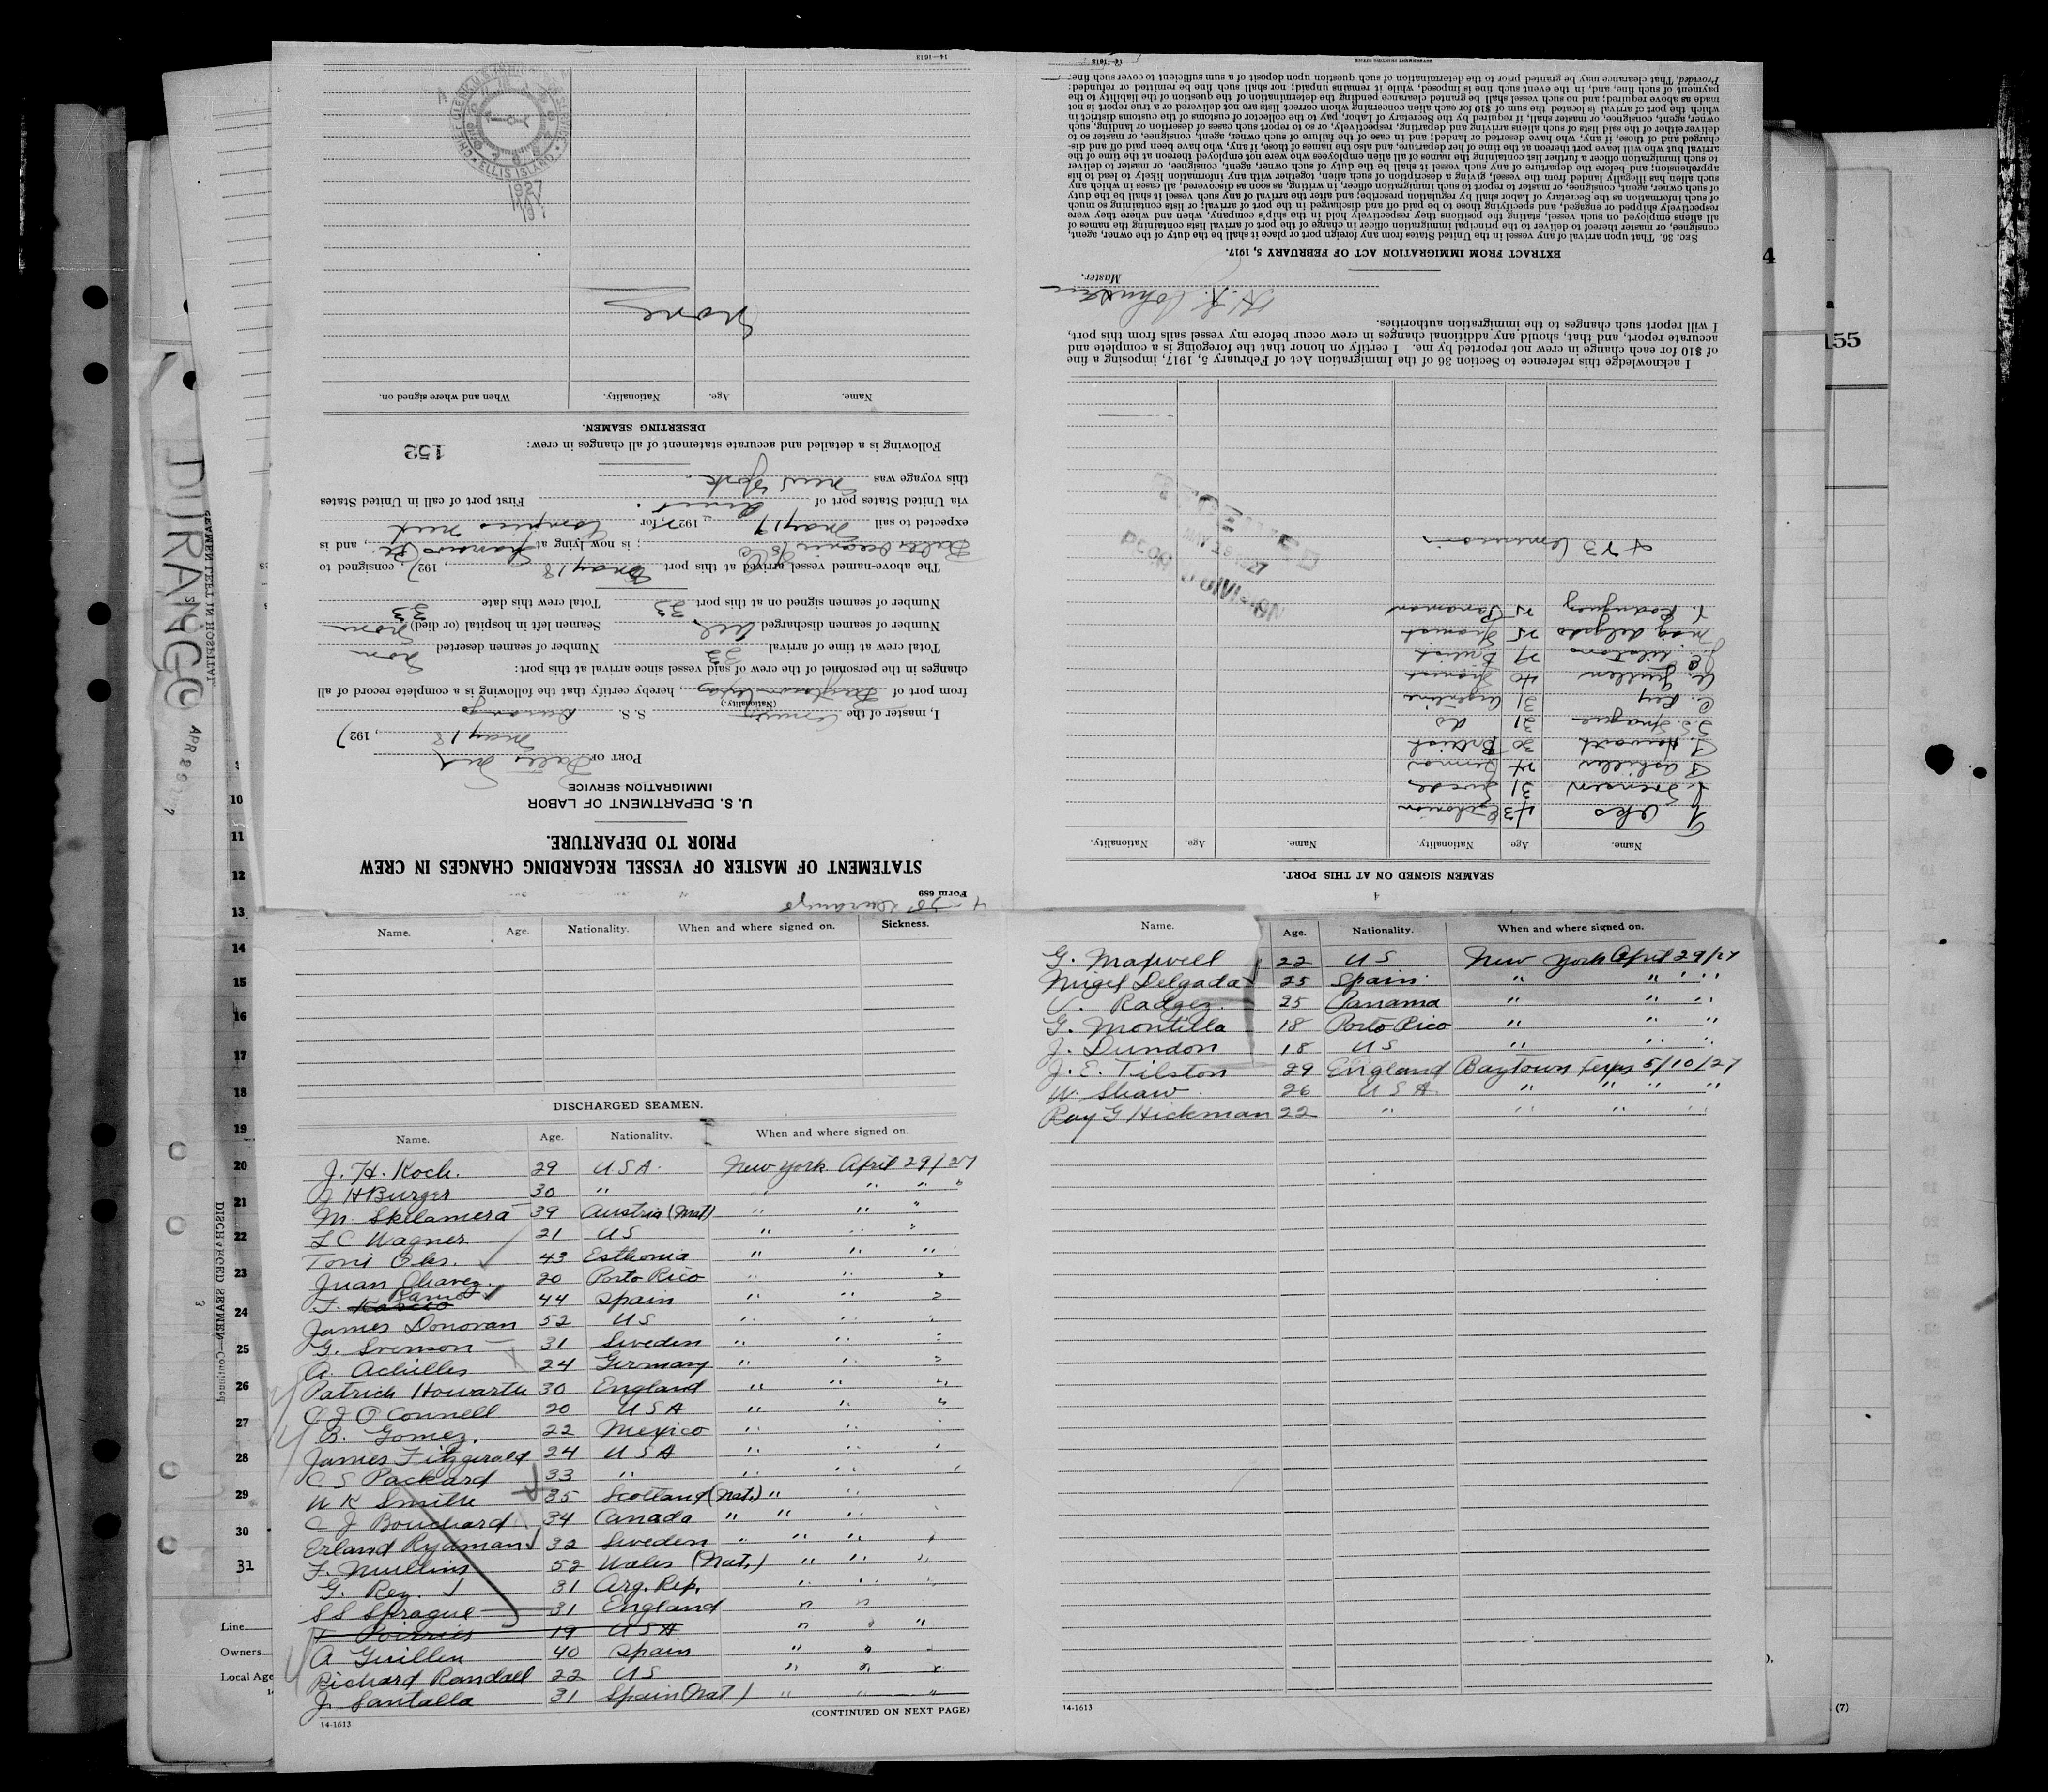 Form 689
STATEMENT OF MASTER OF VESSEL REGARDING CHANGES IN CREW
PRIOR TO DEPARTURE.
U. S. DEPARTMENT OF LABOR
IMMIGRATION SERVICE
PORT OF
May 18, 1927
I, master of the S. S. Durango
(Nationality.)
from port of, hereby certify that the following is a complete record of all
changes in the personnel of the crew of said vessel since arrival at this port:
Total crew at time of arrival 33 Number of seamen deserted None
Number of seamen discharged All Seamen left in hospital (or died) None
Number of seamen signed on at this port 33 Total crew this date 33
The above-named vessel arrived at this port May 18, 1927, consigned to
; is now lying at, and is
expected to sail May 19, 1927, for
via United States port of First port of call in United States
this voyage was New York.
Following is a detailed and accurate statement of all changes in crew:
152
DESERTING SEAMEN.
Name. Age. Nationality. When and where signed on.
None
1927
CHIEF CLERK U. S. IMMIGRATION SERVICE ELLIS ISLAND
14—1613
Name. Age. Nationality. When and where signed on. Sickness.
DISCHARGED SEAMEN.
Name. Age. Nationality. When and where signed on.
J. H. Koch. 29 USA. New York April 29/27
J H Burger 30 " " " " "
M. Skelamera 39 Austria (Nat) " " "
L C Wagner 21 US " " "
Toni Oks. 43 Esthonia " " "
Juan Chavez. 20 Porto Rico " " "
F. Ramos 44 Spain " " "
James Donovan 52 US " " "
G. Svenson 31 Sweden " " "
A. Achilles 24 Germany " " "
Patrick Howarth 30 England " " "
C J O Connell 20 USA " " "
B. Gomez. 22 Mexico " " "
James Fitzgerald 24 USA " " "
C S Packard 33 " " " "
W K Smith 35 Scotland (Nat.) " "
C J Bouchard 34 Canada " " " "
Erland Rydman 32 Sweden " " " "
F. Mullins 52 Wales (Nat.) " " "
G. Rey. 31 Arg. Rep. " " "
S S Sprague 31 England " "
F Poirries 19 USA " " "
A Guillen 40 Spain " " "
Richard Randall 22 US " " "
J. Santalla 31 Spain (Nat) " " "
14-1613
(CONTINUED ON NEXT PAGE)
SEAMEN SIGNED ON AT THIS PORT.
Name. Age. Nationality. Name. Age. Nationality.
T Oks 43 Esthonian
G. Svensen 31 Swede
A Achilles 24 German
P. Howarth 30 British
S.S. Sprague 31 do
G. Rey 31 Argentine
A Guillen 40 Spanish
J.E. Tilston 29 British
Mig Delgado 25 Spanish
V. Rodriguez 25 Panaman
& 23 American
I acknowledge this reference to Section 36 of the Immigration Act of February 5, 1917, imposing a fine
of $10 for each change in crew not reported by me. I certify on honor that the foregoing is a complete and
accurate report, and that, should any additional changes in crew occur before my vessel sails from this port,
I will report such changes to the immigration authorities.
Master.
EXTRACT FROM IMMIGRATION ACT OF FEBRUARY 5, 1917.
SEC. 36. That upon arrival of any vessel in the United States from any foreign port or place it shall be the duty of the owner, agent,
consignee, or master thereof to deliver to the principal immigration officer in charge of the port of arrival lists containing the names of
all aliens employed on such vessel, stating the positions they respectively hold in the ship's company, when and where they were
respectively shipped or engaged, and specifying those to be paid off and discharged in the port of arrival; or lists containing so much
of such information as the Secretary of Labor shall by regulation prescribe; and after the arrival of any such vessel it shall be the duty
of such owner, agent, consignee, or master to report to such immigration officer, in writing, as soon as discovered, all cases in which any
such alien has illegally landed from the vessel, giving a description of such alien, together with any information likely to lead to his
apprehension; and before the departure of any such vessel it shall be the duty of such owner, agent, consignee, or master to deliver
to such immigration officer a further list containing the names of all alien employees who were not employed thereon at the time of the
arrival but who will leave port thereon at the time of her departure, and also the names of those, if any, who have been paid off and dis-
charged and of those, if any, who have deserted or landed; and in case of the failure of such owner, agent, consignee, or master so to
deliver either of the said lists of such aliens arriving and departing, respectively, or so to report such cases of desertion or landing, such
owner, agent, consignee, or master shall, if required by the Secretary of Labor, pay to the collector of customs of the customs district in
which the port of arrival is located the sum of $10 for each alien concerning whom correct lists are not delivered or a true report is not
made as above required; and no such vessel shall be granted clearance pending the determination of the question of the liability to the
payment of such fine, and, in the event such fine is imposed, while it remains unpaid; nor shall such fine be remitted or refunded:
Provided, That clearance may be granted prior to the determination of such question upon deposit of a sum sufficient to cover such fine.
14—1613 GOVERNMENT PRINTING OFFICE
Name. Age. Nationality. When and where signed on.
G. Maxwell 22 US New York April 29/27
Migel Delgada 25 Spain " " " "
V. Radgez. 25 Panama " " "
G. Montilla 18 Porto Rico " " "
J. Dundon 18 US " " "
J. E. Tilston 29 England Baytown Texas 5/10/27
W. Shaw 26 USA. " " " "
Ray G Hickman 22 " " " "
14-1613
DURANGO
APR 29 1927
SEAMEN LEFT IN HOSPITAL
DISCHARGED SEAMEN—Continued
3
9
10
11
12
13
14
15
16
17
18
19
20
21
22
23
24
25
26
27
28
29
30
31
Line
Owners
Local Age
4
155
(7)